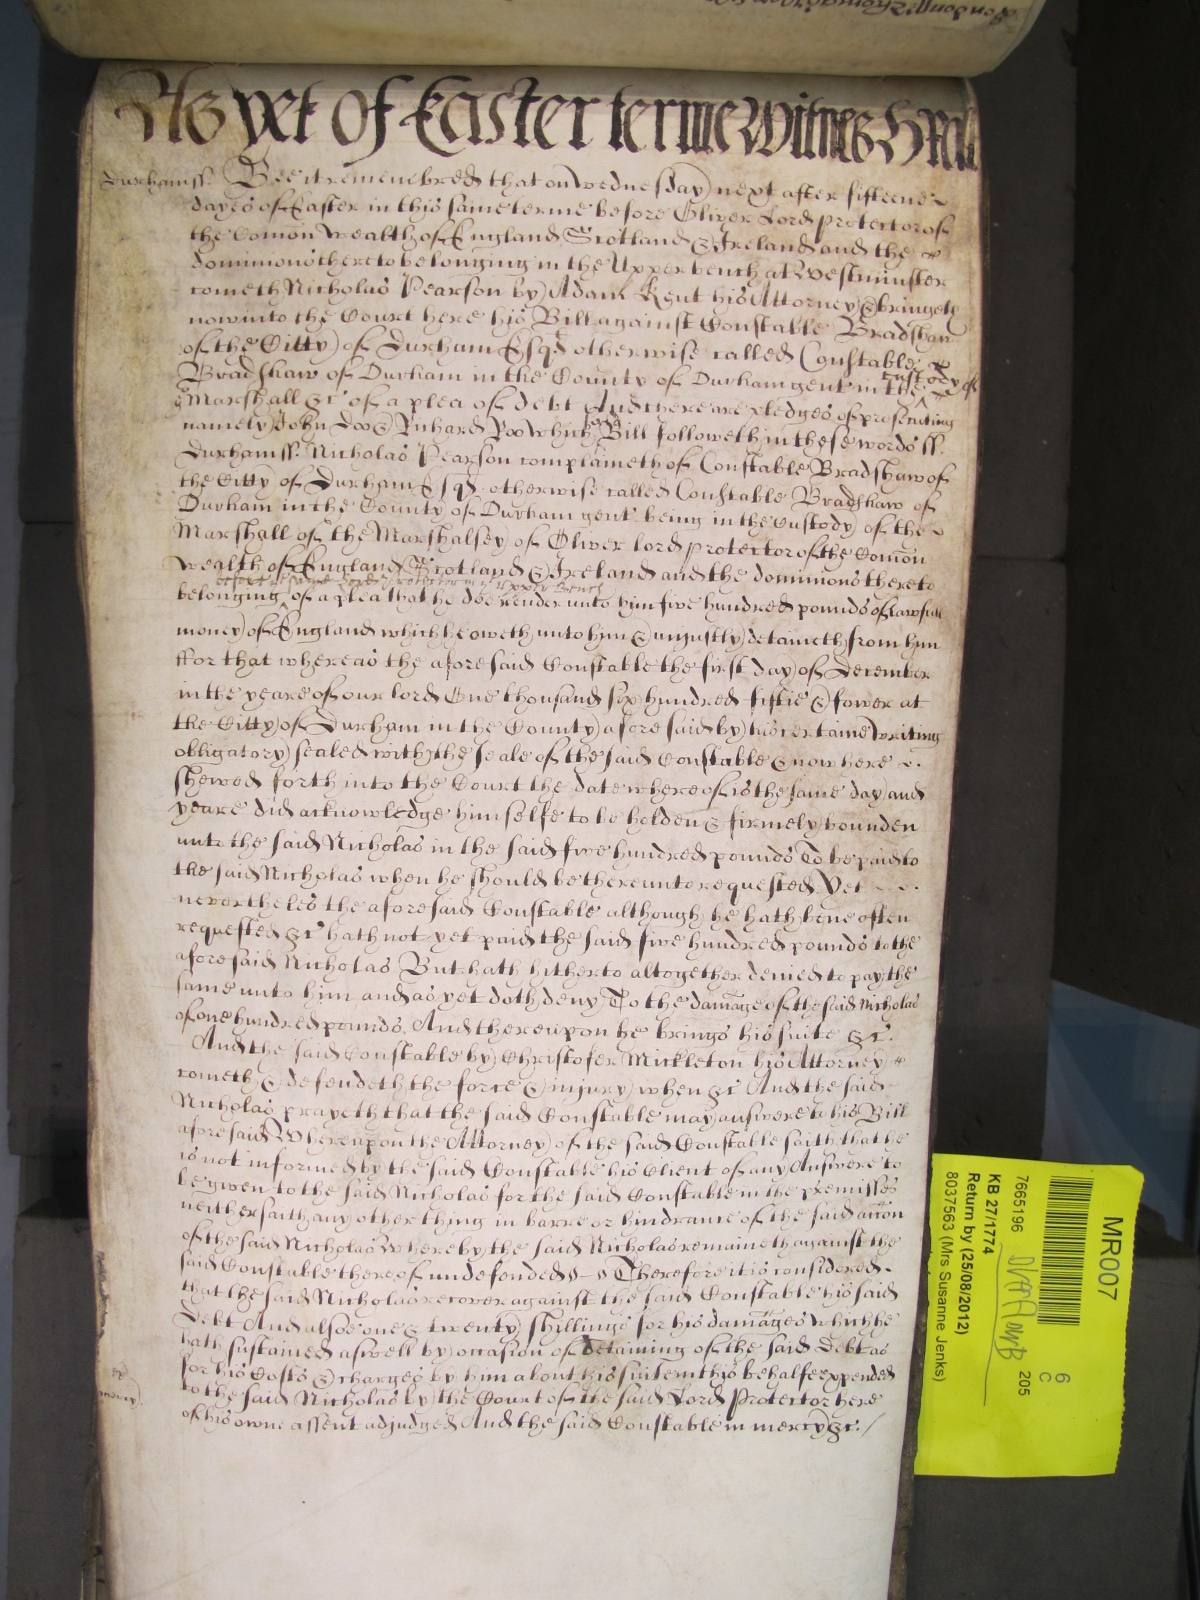 As yet of Easter terme Witnes H Roll
Durham ss. Bee it remembred that on wednesday next after fifteene
dayes of Easter in this same terme before Oliver Lord protector of
the Comon Wealth of England Scotland & Ireland and the
dominions thereto belonging in the Upper bench at Westminster
cometh Nicholas Pearson by Adam Kent his Attorney & bringeth
now into the Court here his Bill against Constable Bradshaw
of the Citty of Durham Esqr otherwise called Constable
Bradshaw of Durham in the County of Durham gent in the custody of
ye Marshall &c of a plea of debt And there are pledges of prosecuting
namely John Doo & Richard Roo which said Bill followeth in these words ss.
Durham ss. Nicholas Pearson complaineth of Constable Bradshaw of
the Citty of Durham Esqr otherwise called Constable Bradshaw of
Durham in the County of Durham gent being in the Custody of the
Marshall of the Marshalsey of Oliver lord protector of the Comon
Wealth of England Scotland & Ireland and the dominions thereto
before ye said Lord Protector in ye Upper Bench
belonging of a plea that he doe render unto him five hundred pounds of lawfull
money of England which he oweth unto him & uniustly detaineth from him
ffor that whereas the aforesaid Constable the first day of December
in the yeare of our lord One thousand six hundred fiftie & fower at
the Citty of Durham in the County aforesaid by his certaine writing
obligatory sealed with the seale of the said Constable & now here
shewed forth into the Court the date whereof is the same day and
yeare did acknowledge himselfe to be holden & firmely bounden
unto the said Nicholas in the said five hundred pounds To be paid to
the said Nicholas when he should be thereunto requested Yet
nevertheles the aforesaid Constable although he hath bene often
requested &c hath not yet paid the said five hundred pounds to the
aforesaid Nicholas But hath hitherto altogether denied to pay the
same unto him and as yet doth deny To the damage of the said Nicholas
of one hundred pounds. And thereupon he brings his suite &c.
And the said Constable by Christofer Mickleton his Attorney
cometh & defendeth the force & iniury when &c And the said
Nicholas prayeth that the said Constable may answere to his Bill
aforesaid Whereupon the Attorney of the said Constable saith that he
is not informed by the said Constable his Client of any Answere to
be given to the said Nicholas for the said Constable in the premisses
neither saith any other thing in barre or hindrance of the said accon
of the said Nicholas whereby the said Nicholas remaineth against the
said Constable thereof undefended Therefore it is considered
that the said Nicholas recover against the said Constable his said
Debt And alsoe one & twenty shillings for his damages which he
hath sustained aswell by occasion of detaining of the said Debt as
for his Costs & charges by him about his suite in this behalfe expended
to the said Nicholas by the Court of the said Lord Protector here
of his owne assent adiudged And the said Constable in mercy &c. /
mercy
MR007
7665196
6
C
205
KB 27/1774
Return by (25/08/2012)
8037563 (Mrs Susanne Jenks)